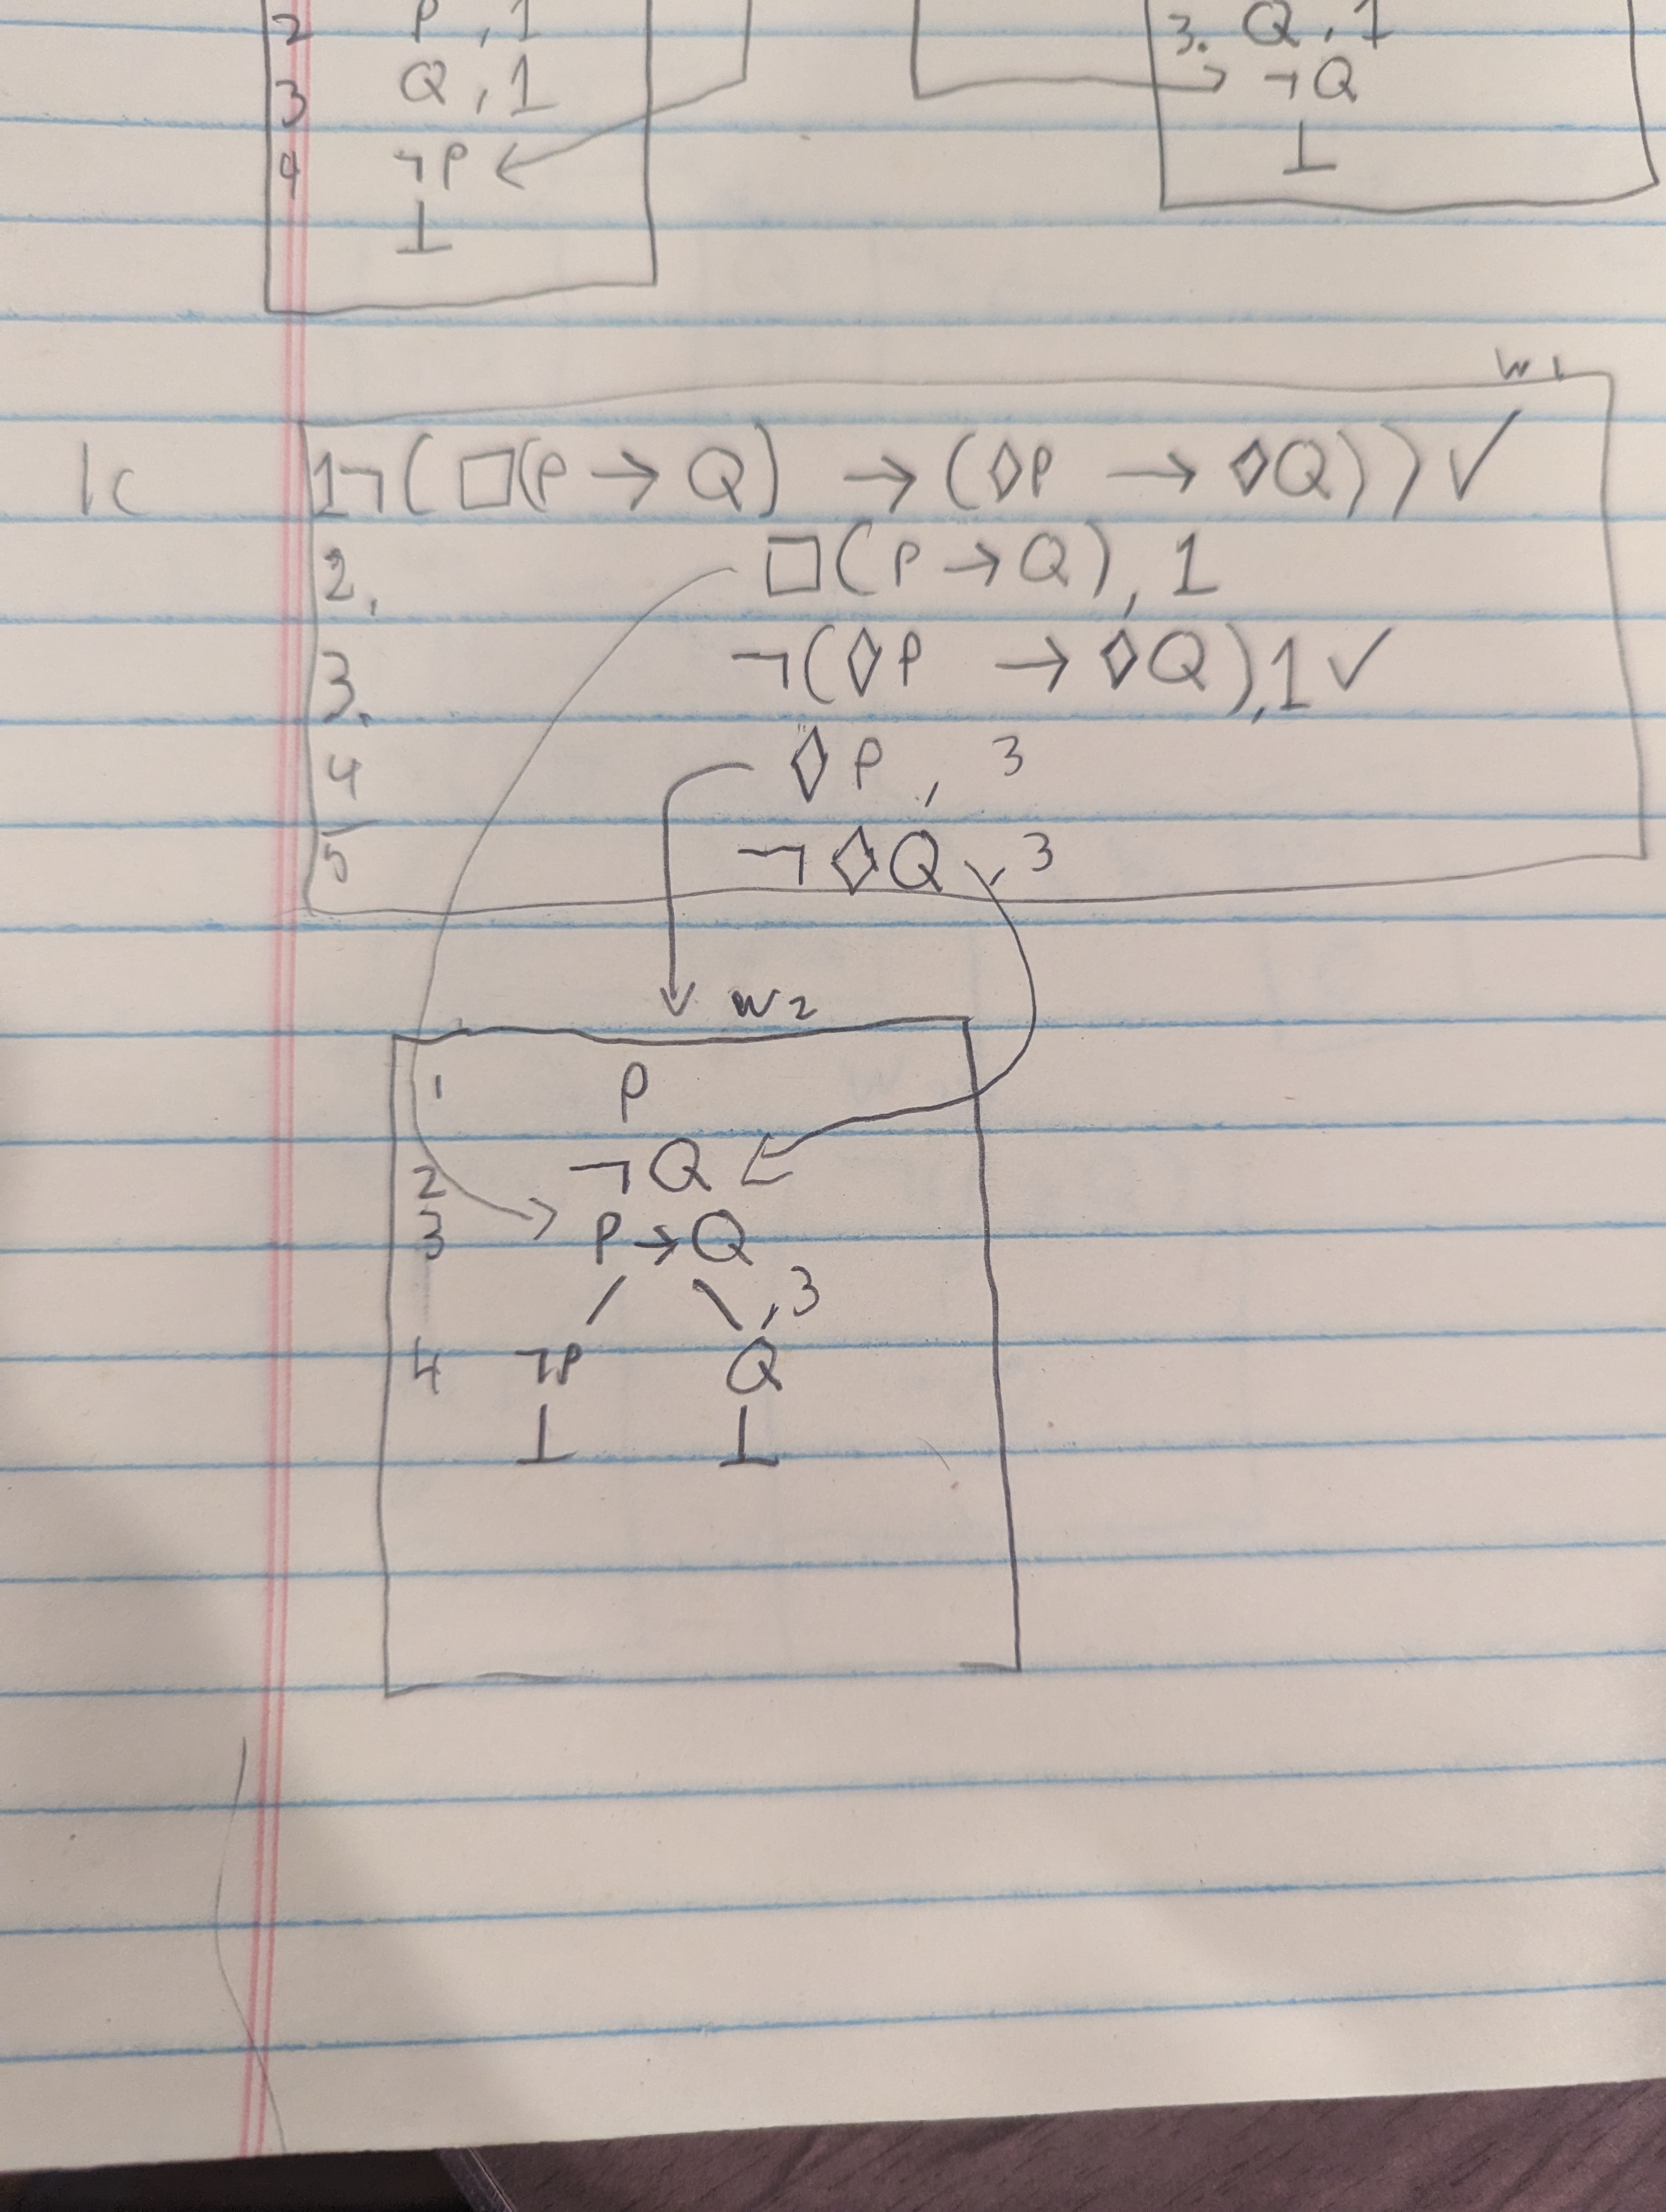 2 P , 1
3 Q , 1
4 ¬P
⊥
3. Q , 1
¬Q
⊥
W1
1c
1 ¬(□(P → Q) → (◊P → ◊Q)) ✓
2. □(P → Q), 1
3. ¬(◊P → ◊Q), 1 ✓
4 ◊P , 3
5 ¬◊Q , 3
W2
1 P
2 ¬Q
3 P → Q
, 3
4 ¬P Q
⊥ ⊥